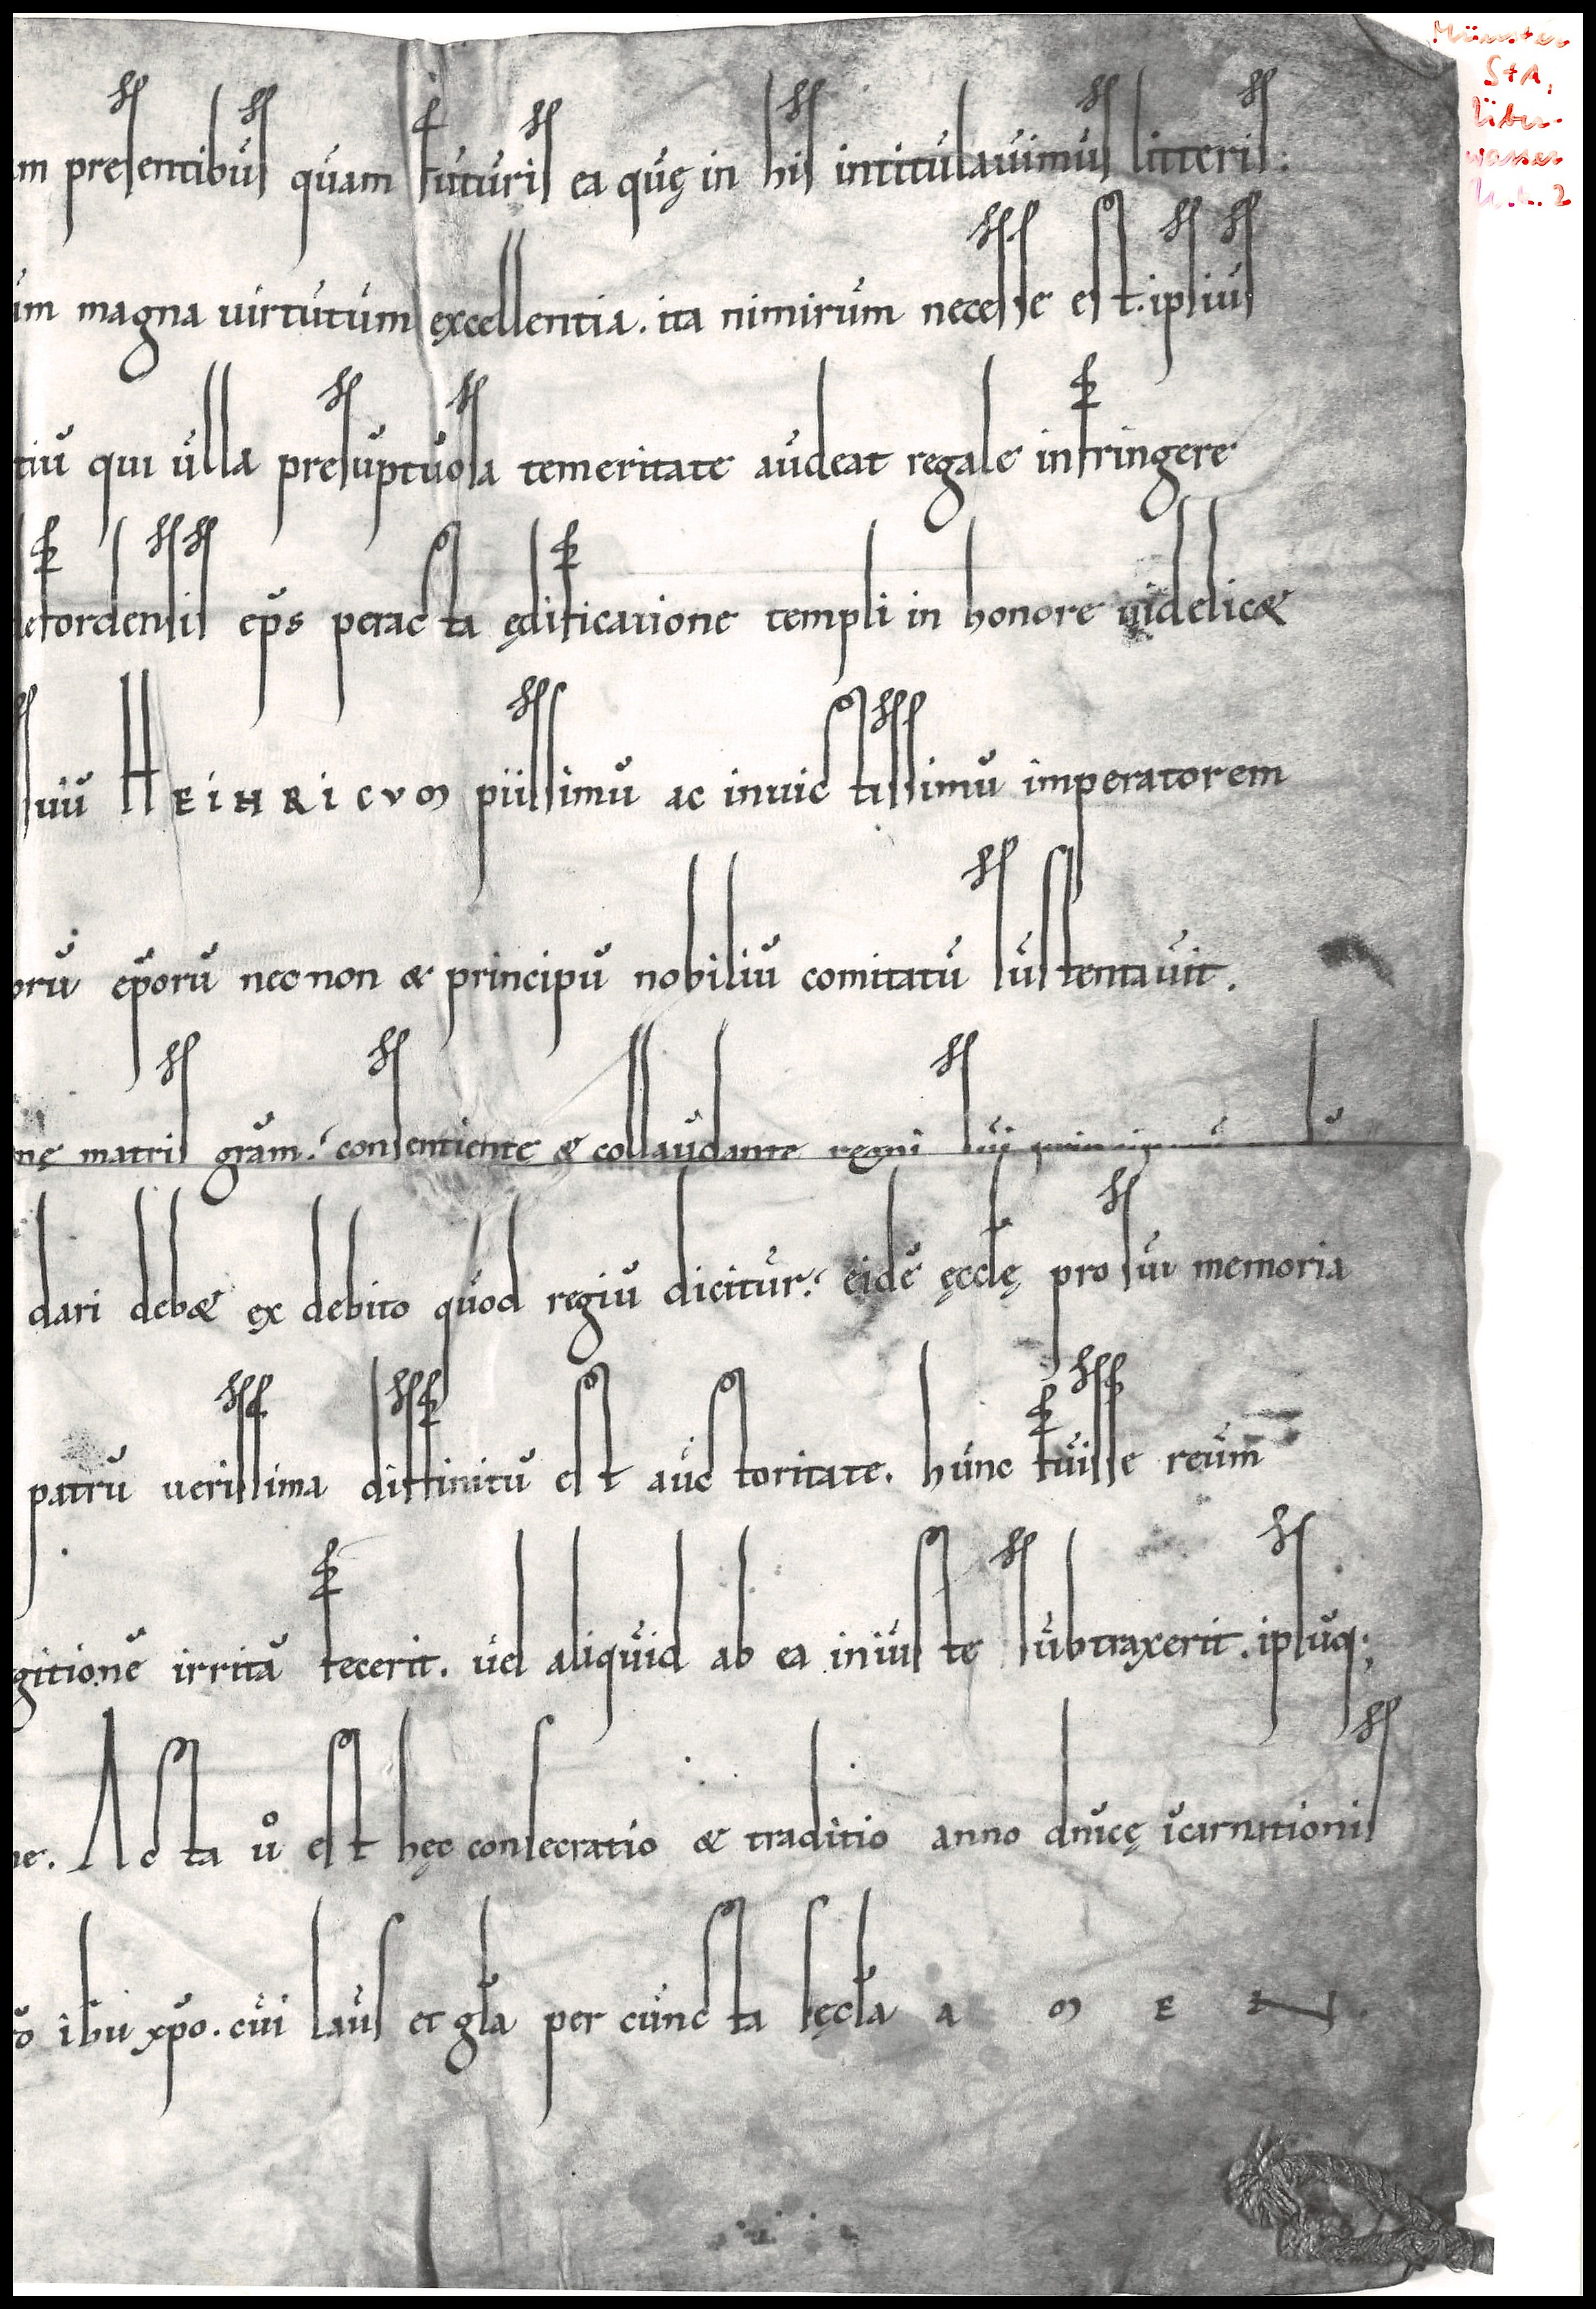 Münster
StA,
Über-
wasser
U. 2
m presentibus quam futuris ea quę in his intitulavimus litteris.
um magna virtutum excellentia. ita nimirum necesse est. ipsius
tiū qui ulla presuptuosa temeritate audeat regale infringere
efordensis ep̄s peracta ędificatione templi in honore videlicæ
suū HEINRICUM piissimū ac invictissimū imperatorem
orū ep̄orū necnon & principū nobiliū comitatu sustentavit.
nę matris grām. consentiente & collaudante regni sui
dari debæ ex debito quod regiū dicitur. eidē ęccłę pro sui memoria
patrū verissima diffinitū est auctoritate. hunc fuisse reum
gitionē irritā fecerit. vel aliquid ab ea iniuste subtraxerit. ipsūq;
ne. Acta uͦ est hęc consecratio & traditio anno dn̄icę īcarnationis
ro ihu xp̄o. cui laus et gl̄a per cuncta sęcła AMEN.